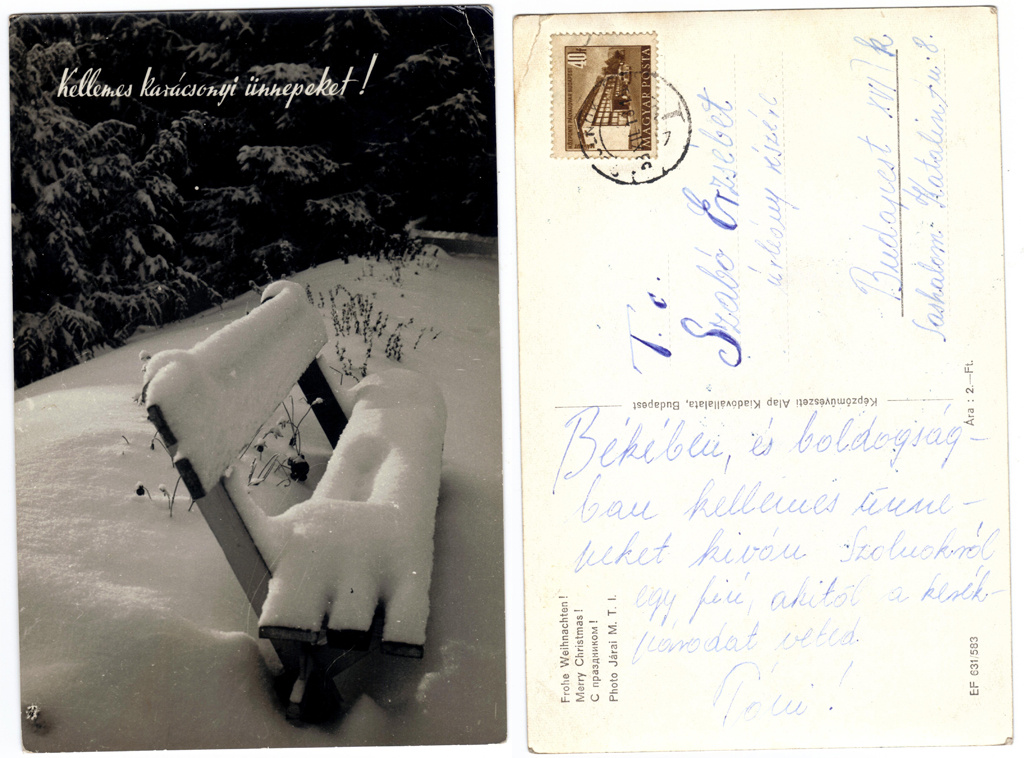 Kellemes karácsonyi ünnepeket!
40f
MAGYAR POSTA
T. c.
Szabó Erzsébet
úrleány részére
Budapest XVI/k
Sashalom. Katalin u. 8.
Képzőművészeti Alap Kiadóvállalata, Budapest
Ára: 2.—Ft.
Békében, és boldogság-
ban kellemes ünne-
peket kíván Szolnokról
egy fiú, akitől a kerék-
párodat vetted
Tóni!
Frohe Weihnachten!
Merry Christmas!
С праздником!
Photo Járai M. T. I.
EF 631/583